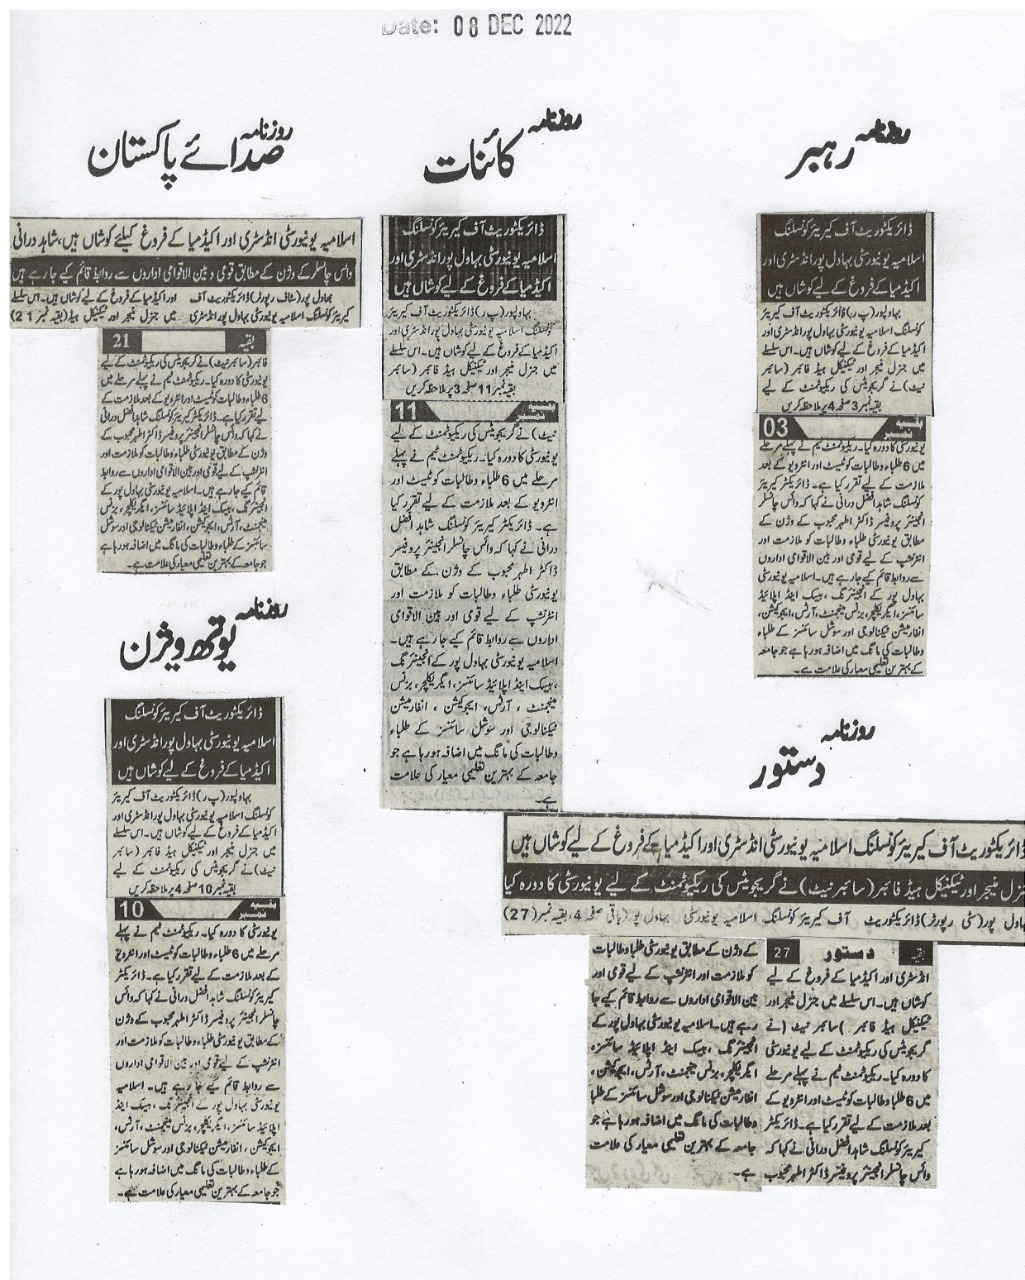 Date: 08 DEC 2022
روزنامہ
صدائے پاکستان
اسلامیہ یونیورسٹی انڈسٹری اور اکیڈمیا کے فروغ کیلئے کوشاں ہیں، شاہد درانی
وائس چانسلر کے وژن کے مطابق قومی و بین الاقوامی اداروں سے روابط قائم کیے جا رہے ہیں
بہاول پور (سٹاف رپورٹر) ڈائریکٹوریٹ آف
کیریئر کونسلنگ اسلامیہ یونیورسٹی بہاول پور انڈسٹری
اور اکیڈمیا کے فروغ کے لیے کوشاں ہیں۔ اس سلسلے
میں جنرل منیجر اور ٹیکنیکل ہیڈ (بقیہ نمبر 21)
بقیہ 21
فائبر (سائبر نیٹ) نے گریجویٹس کی ریکیوٹمنٹ کے لیے
یونیورسٹی کا دورہ کیا۔ ریکیوٹمنٹ ٹیم نے پہلے مرحلے میں
6 طلباء و طالبات کو ٹیسٹ اور انٹرویو کے بعد ملازمت کے
لیے تقرر کیا ہے۔ ڈائریکٹر کیریئر کونسلنگ شاہد افضل درانی
نے کہا کہ وائس چانسلر انجینئر پروفیسر ڈاکٹر اطہر محبوب کے
وژن کے مطابق یونیورسٹی طلباء و طالبات کو ملازمت اور
انٹرنشپ کے لیے قومی اور بین الاقوامی اداروں سے روابط
قائم کیے جا رہے ہیں۔ اسلامیہ یونیورسٹی بہاول پور کے
انجینئرنگ، بیسک اینڈ اپلائیڈ سائنسز، ایگریکلچر، بزنس
مینجمنٹ، آرٹس، ایجوکیشن، انفارمیشن ٹیکنالوجی اور سوشل
سائنسز کے طلباء و طالبات کی مانگ میں اضافہ ہو رہا ہے
جو جامعہ کے بہترین تعلیمی معیار کی علامت ہے۔
روزنامہ
کائنات
ڈائریکٹوریٹ آف کیریئر کونسلنگ
اسلامیہ یونیورسٹی بہاول پور انڈسٹری اور
اکیڈمیا کے فروغ کے لیے کوشاں ہیں
بہاولپور (پ ر) ڈائریکٹوریٹ آف کیریئر
کونسلنگ اسلامیہ یونیورسٹی بہاول پور انڈسٹری اور
اکیڈمیا کے فروغ کے لیے کوشاں ہیں۔ اس سلسلے
میں جنرل منیجر اور ٹیکنیکل ہیڈ فائبر (سائبر
بقیہ نمبر 11 صفحہ 3 پر ملاحظہ کریں
بقیہ نمبر 11
نیٹ) نے گریجویٹس کی ریکیوٹمنٹ کے لیے
یونیورسٹی کا دورہ کیا۔ ریکیوٹمنٹ ٹیم نے پہلے
مرحلے میں 6 طلباء و طالبات کو ٹیسٹ اور
انٹرویو کے بعد ملازمت کے لیے تقرر کیا
ہے۔ ڈائریکٹر کیریئر کونسلنگ شاہد افضل
درانی نے کہا کہ وائس چانسلر انجینئر پروفیسر
ڈاکٹر اطہر محبوب کے وژن کے مطابق
یونیورسٹی طلباء و طالبات کو ملازمت اور
انٹرنشپ کے لیے قومی اور بین الاقوامی
اداروں سے روابط قائم کیے جا رہے ہیں۔
اسلامیہ یونیورسٹی بہاول پور کے انجینئرنگ
، بیسک اینڈ اپلائیڈ سائنسز، ایگریکلچر، بزنس
مینجمنٹ، آرٹس، ایجوکیشن، انفارمیشن
ٹیکنالوجی اور سوشل سائنسز کے طلباء
و طالبات کی مانگ میں اضافہ ہو رہا ہے جو
جامعہ کے بہترین تعلیمی معیار کی علامت
ہے۔
روزنامہ
رہبر
ڈائریکٹوریٹ آف کیریئر کونسلنگ
اسلامیہ یونیورسٹی بہاول پور انڈسٹری اور
اکیڈمیا کے فروغ کے لیے کوشاں ہیں
بہاولپور (پ ر) ڈائریکٹوریٹ آف کیریئر
کونسلنگ اسلامیہ یونیورسٹی بہاول پور انڈسٹری اور
اکیڈمیا کے فروغ کے لیے کوشاں ہیں۔ اس سلسلے
میں جنرل منیجر اور ٹیکنیکل ہیڈ فائبر (سائبر
نیٹ) نے گریجویٹس کی ریکیوٹمنٹ کے لیے
بقیہ نمبر 3 صفحہ 4 پر ملاحظہ کریں
بقیہ نمبر 03
یونیورسٹی کا دورہ کیا۔ ریکیوٹمنٹ ٹیم نے پہلے مرحلے
میں 6 طلباء و طالبات کو ٹیسٹ اور انٹرویو کے بعد
ملازمت کے لیے تقرر کیا ہے۔ ڈائریکٹر کیریئر
کونسلنگ شاہد افضل درانی نے کہا کہ وائس چانسلر
انجینئر پروفیسر ڈاکٹر اطہر محبوب کے وژن کے
مطابق یونیورسٹی طلباء و طالبات کو ملازمت اور
انٹرنشپ کے لیے قومی اور بین الاقوامی اداروں
سے روابط قائم کیے جا رہے ہیں۔ اسلامیہ یونیورسٹی
بہاول پور کے انجینئرنگ، بیسک اینڈ اپلائیڈ
سائنسز، ایگریکلچر، بزنس مینجمنٹ، آرٹس، ایجوکیشن،
انفارمیشن ٹیکنالوجی اور سوشل سائنسز کے طلباء
و طالبات کی مانگ میں اضافہ ہو رہا ہے جو جامعہ
کے بہترین تعلیمی معیار کی علامت ہے۔
روزنامہ
یوتھ ویژن
ڈائریکٹوریٹ آف کیریئر کونسلنگ
اسلامیہ یونیورسٹی بہاول پور انڈسٹری اور
اکیڈمیا کے فروغ کے لیے کوشاں ہیں
بہاولپور (پ ر) ڈائریکٹوریٹ آف کیریئر
کونسلنگ اسلامیہ یونیورسٹی بہاول پور انڈسٹری اور
اکیڈمیا کے فروغ کے لیے کوشاں ہیں۔ اس سلسلے
میں جنرل منیجر اور ٹیکنیکل ہیڈ فائبر (سائبر
نیٹ) نے گریجویٹس کی ریکیوٹمنٹ کے لیے
بقیہ نمبر 10 صفحہ 4 پر ملاحظہ کریں
بقیہ نمبر 10
یونیورسٹی کا دورہ کیا۔ ریکیوٹمنٹ ٹیم نے پہلے
مرحلے میں 6 طلباء و طالبات کو ٹیسٹ اور انٹرویو
کے بعد ملازمت کے لیے تقرر کیا ہے۔ ڈائریکٹر
کیریئر کونسلنگ شاہد افضل درانی نے کہا کہ وائس
چانسلر انجینئر پروفیسر ڈاکٹر اطہر محبوب کے وژن
کے مطابق یونیورسٹی طلباء و طالبات کو ملازمت اور
انٹرنشپ کے لیے قومی اور بین الاقوامی اداروں
سے روابط قائم کیے جا رہے ہیں۔ اسلامیہ
یونیورسٹی بہاول پور کے انجینئرنگ، بیسک اینڈ
اپلائیڈ سائنسز، ایگریکلچر، بزنس مینجمنٹ، آرٹس،
ایجوکیشن، انفارمیشن ٹیکنالوجی اور سوشل سائنسز
کے طلباء و طالبات کی مانگ میں اضافہ ہو رہا ہے
جو جامعہ کے بہترین تعلیمی معیار کی علامت ہے۔
روزنامہ
دستور
ڈائریکٹوریٹ آف کیریئر کونسلنگ اسلامیہ یونیورسٹی انڈسٹری اور اکیڈمیا کے فروغ کے لیے کوشاں ہیں
جنرل منیجر اور ٹیکنیکل ہیڈ فائبر (سائبر نیٹ) نے گریجویٹس کی ریکیوٹمنٹ کے لیے یونیورسٹی کا دورہ کیا
بہاول پور (سٹی رپورٹر) ڈائریکٹوریٹ آف کیریئر کونسلنگ اسلامیہ یونیورسٹی بہاول پور (باقی صفحہ 4، بقیہ نمبر 27)
بقیہ دستور 27
انڈسٹری اور اکیڈمیا کے فروغ کے لیے
کوشاں ہیں۔ اس سلسلے میں جنرل منیجر اور
ٹیکنیکل ہیڈ فائبر (سائبر نیٹ) نے
گریجویٹس کی ریکیوٹمنٹ کے لیے یونیورسٹی
کا دورہ کیا۔ ریکیوٹمنٹ ٹیم نے پہلے مرحلے
میں 6 طلبا و طالبات کو ٹیسٹ اور انٹرویو کے
بعد ملازمت کے لیے تقرر کیا ہے۔ ڈائریکٹر
کیریئر کونسلنگ شاہد افضل درانی نے کہا کہ
وائس چانسلر انجینئر پروفیسر ڈاکٹر اطہر محبوب
کے وژن کے مطابق یونیورسٹی طلبا و طالبات
کو ملازمت اور انٹرنشپ کے لیے قومی اور
بین الاقوامی اداروں سے روابط قائم کیے جا
رہے ہیں۔ اسلامیہ یونیورسٹی بہاول پور کے
انجینئرنگ، بیسک اینڈ اپلائیڈ سائنسز،
ایگریکلچر، بزنس مینجمنٹ، آرٹس، ایجوکیشن،
انفارمیشن ٹیکنالوجی اور سوشل سائنسز کے طلبا
و طالبات کی مانگ میں اضافہ ہو رہا ہے جو
جامعہ کے بہترین تعلیمی معیار کی علامت
ہے۔